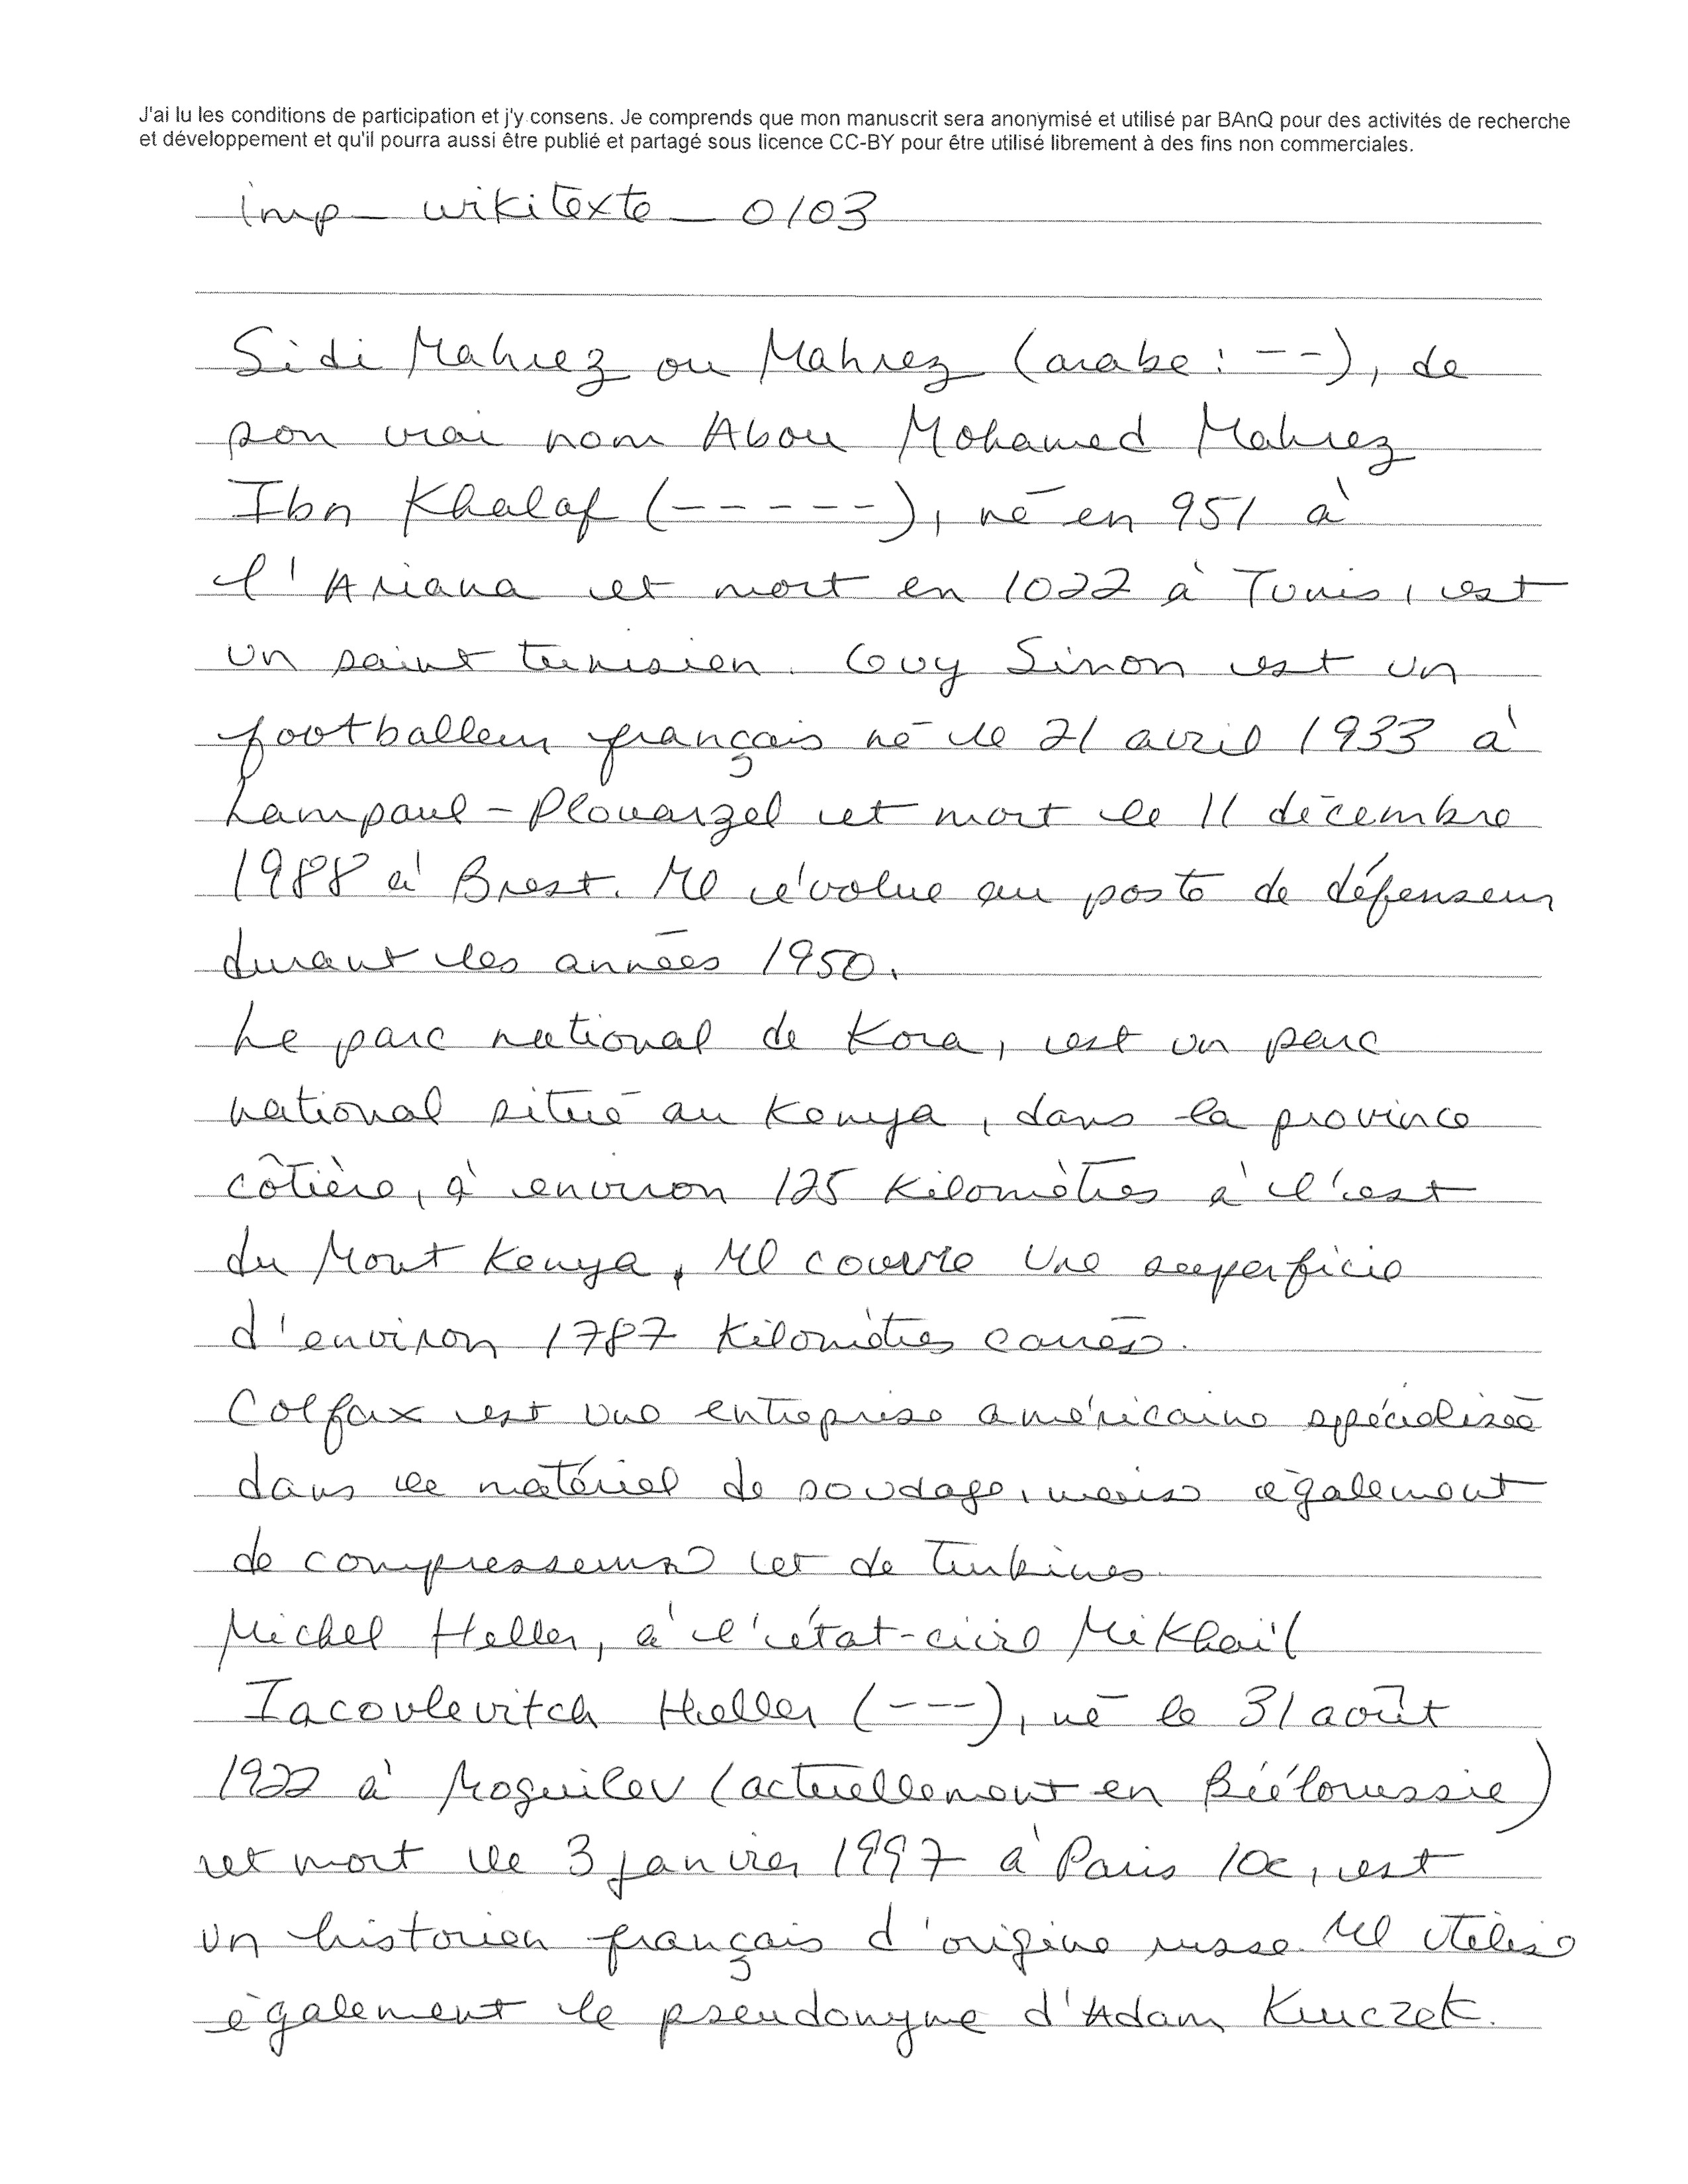 J'ai lu les conditions de participation et j'y consens. Je comprends que mon manuscrit sera anonymisé et utilisé par BAnQ pour des activités de recherche
et développement et qu'il pourra aussi être publié et partagé sous licence CC-BY pour être utilisé librement à des fins non commerciales.
imp_wikitexte_0103
Sidi Mahrez ou Mahrez (arabe : --), de
son vrai nom Abou Mohamed Mahrez
Ibn Khalaf (-----), né en 951 à
l'Ariana et mort en 1022 à Tunis, est
un saint tunisien. Guy Sinon est un
footballeur français né le 21 avril 1933 à
Lampaul-Plouarzel et mort le 11 décembre
1988 à Brest. Il évolue au poste de défenseur
durant les années 1950.
Le parc national de Kora, est un parc
national situé au Kenya, dans la province
côtière, à environ 125 kilomètres à l'est
du Mont Kenya. Il couvre une superficie
d'environ 1787 kilomètres carrés.
Colfax est une entreprise américaine spécialisée
dans le matériel de soudage, mais également
de compresseurs et de turbines.
Michel Heller, à l'état-civil Mikhaïl
Iacovlevitch Heller (---), né le 31 août
1922 à Moguilev (actuellement en Biélorussie)
et mort le 3 janvier 1997 à Paris 10e, est
un historien français d'origine russe. Il utilise
également le pseudonyme d'Adam Kruczek.